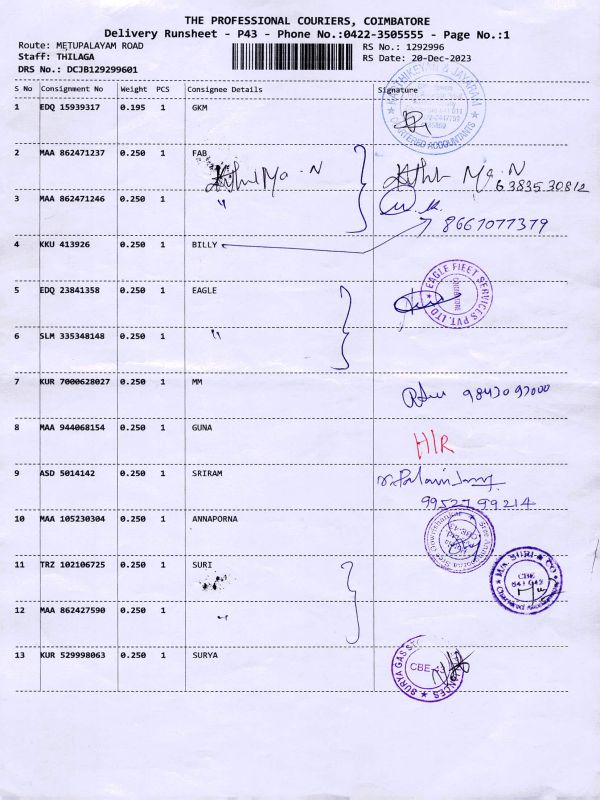 THE PROFESSIONAL COURIERS, COIMBATORE
Delivery Runsheet - P43 - Phone No.:0422-3505555 - Page No.:1
Route: METUPALAYAM ROAD RS No.: 1292996
Staff: THILAGA RS Date: 20-Dec-2023
DRS No.: DCJB129299601
S No Consignment No Weight PCS Consignee Details Signature
1 EDQ 15939317 0.195 1 GKM
CHARTERED ACCOUNTANTS
2 MAA 862471237 0.250 1 FAB
63835 30812
3 MAA 862471246 0.250 1 "
8667077379
4 KKU 413926 0.250 1 BILLY
5 EDQ 23841358 0.250 1 EAGLE
EAGLE FLEET SERVICES PVT. LTD.
6 SLM 335348148 0.250 1 "
7 KUR 7000628027 0.250 1 MM
8 MAA 944068154 0.250 1 GUNA
H/R
9 ASD 5014142 0.250 1 SRIRAM
99527 99214
10 MAA 105230304 0.250 1 ANNAPORNA
11 TRZ 102106725 0.250 1 SURI
SURI & CO
CBE
12 MAA 862427590 0.250 1 "
13 KUR 529998063 0.250 1 SURYA
SURYA GAS
CBE-43